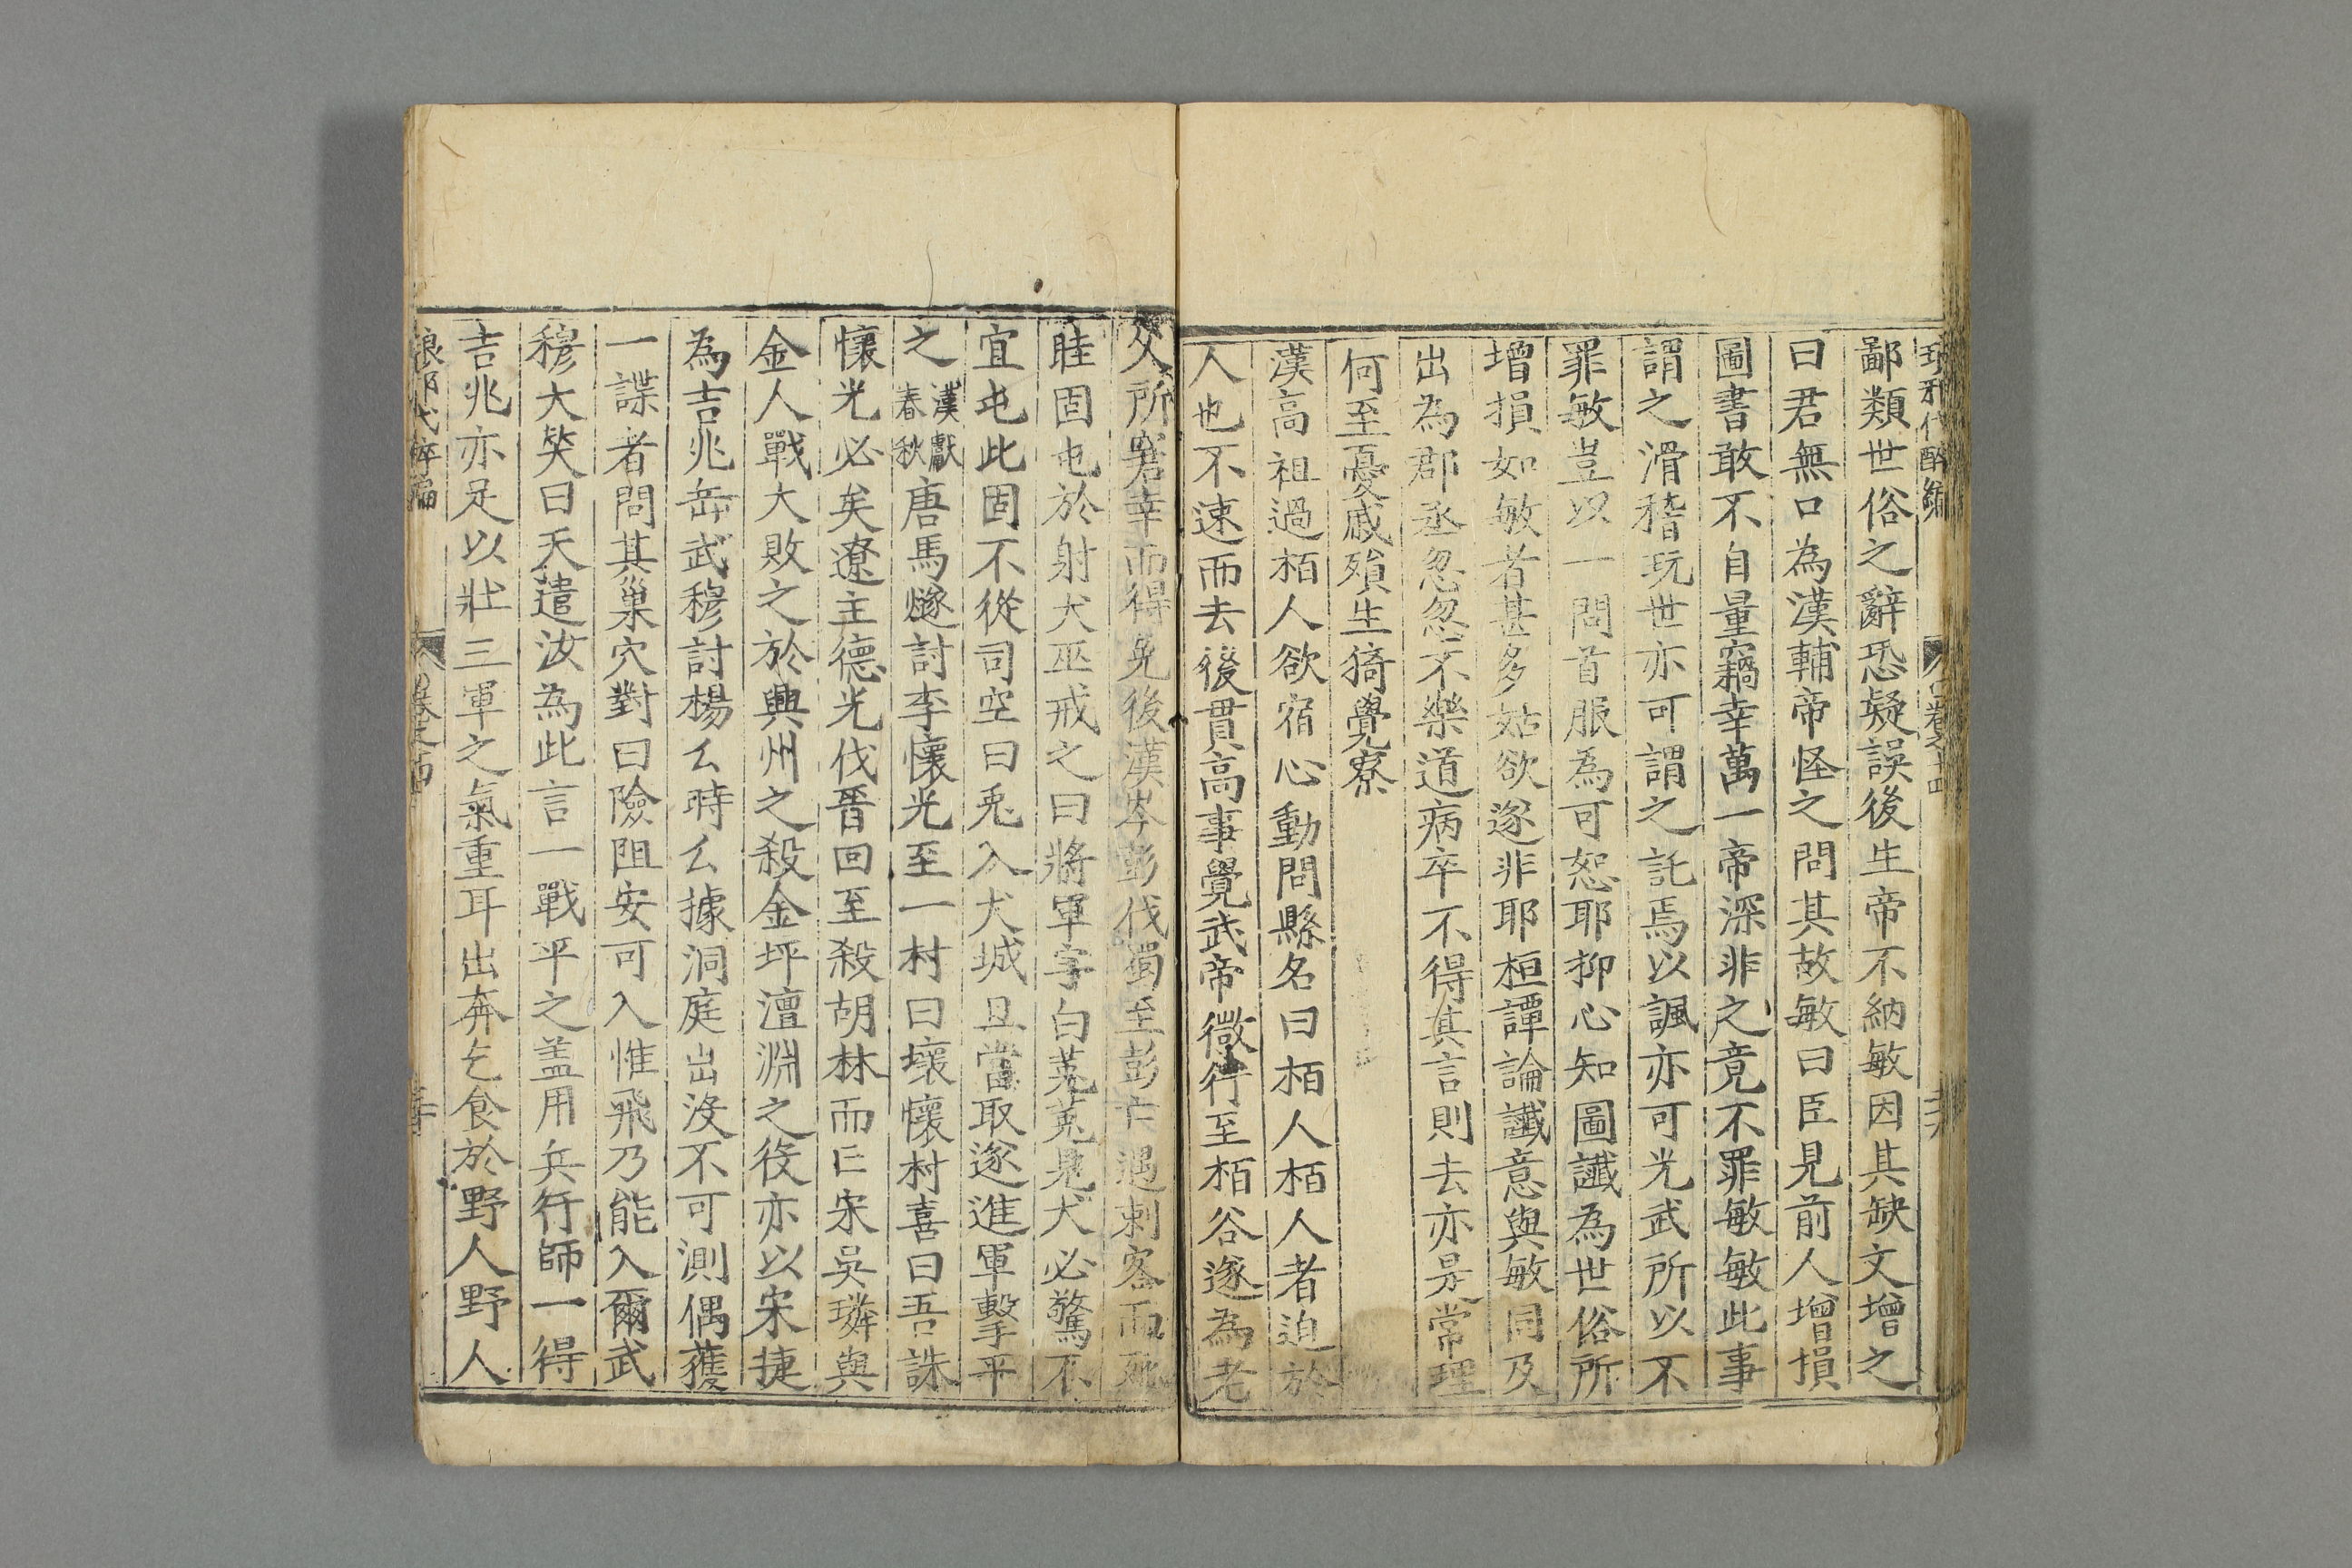 琅邪代醉編 卷之十四
鄙類世俗之辭恐疑誤後生帝不納敏因其缺文增之
曰君無口為漢輔帝怪之問其故敏曰臣見前人增損
圖書敢不自量竊幸萬一帝深非之竟不罪敏敏此事
謂之滑稽玩世亦可謂之託焉以諷亦可光武所以不
罪敏豈以一問首服為可恕耶抑心知圖讖為世俗所
增損如敏者甚多姑欲遂非耶桓譚論讖意與敏同及
出為郡丞忽忽不樂道病卒不得其言則去亦是常理
何至憂戚殞生猗覺寮
漢高祖過栢人欲宿心動問縣名曰栢人栢人者迫於
人也不速而去後貫高事覺武帝微行至栢谷遂為老
父所窘幸而得免後漢岑彭伐蜀至彭亡遇刺客而死
眭固屯於射犬巫戒之曰將軍字白菟菟見犬必驚不
宜屯此固不從司空曰兎入犬城且當取遂進軍擊平
之漢獻春秋唐馬燧討李懷光至一村曰壞懷村喜曰吾誅
懷光必矣遼主德光伐晉回至殺胡林而亡宋吳璘與
金人戰大敗之於興州之殺金坪澶淵之役亦以宋捷
為吉兆岳武穆討楊么時么據洞庭出沒不可測偶獲
一諜者問其巢穴對曰險阻安可入惟飛乃能入爾武
穆大笑曰天遣汝為此言一戰平之盖用兵行師一得
吉兆亦足以壯三軍之氣重耳出奔乞食於野人野人
琅邪代醉編 卷之十四